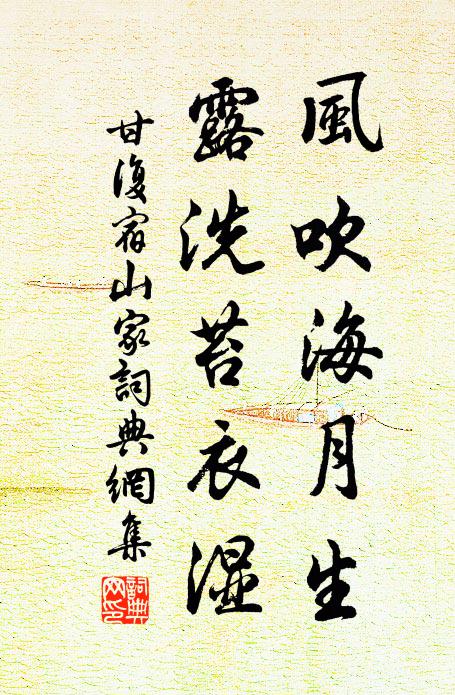 風吹海月生
露洗苔衣湿
甘復宿山家詞典網集
詞典網印